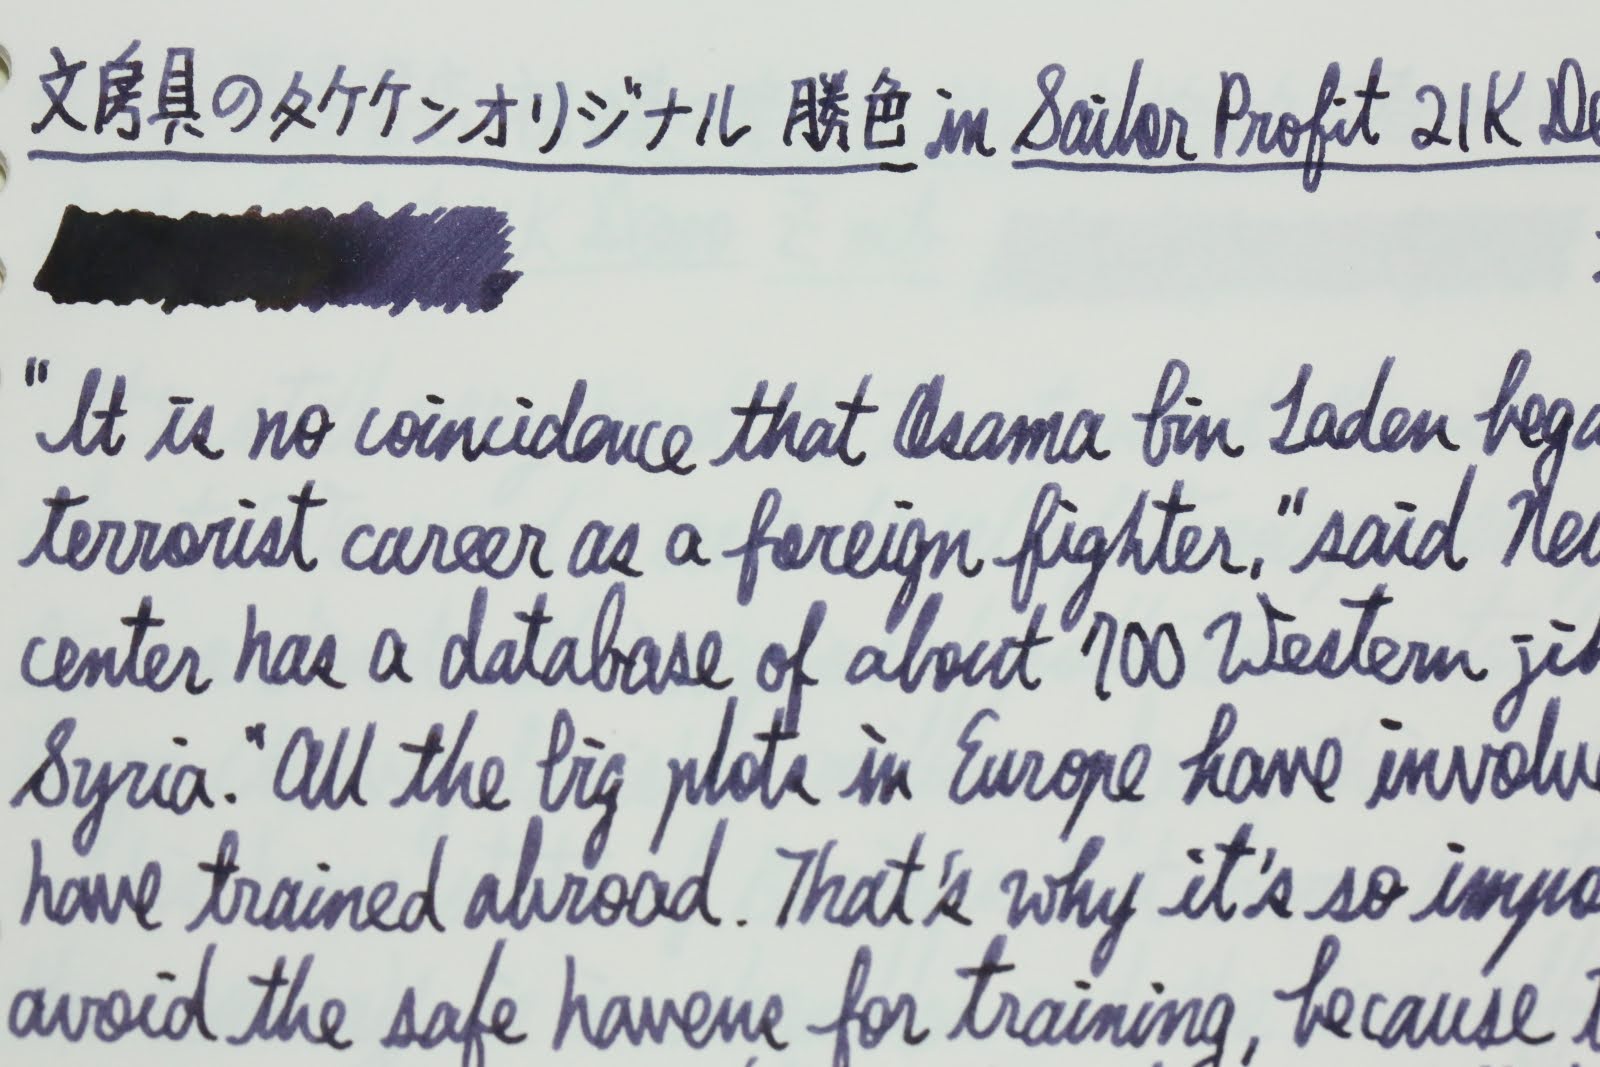 文房具のタケケンオリジナル 勝色 in Sailor Profit 21K De
"It is no coincidence that Osama bin Laden bega
terrorist career as a foreign fighter," said
center has a database of about 700 Western jih
Syria. "All the big plots in Europe have involve
have trained abroad. That's why it's so impo
avoid the safe havens for training, because t